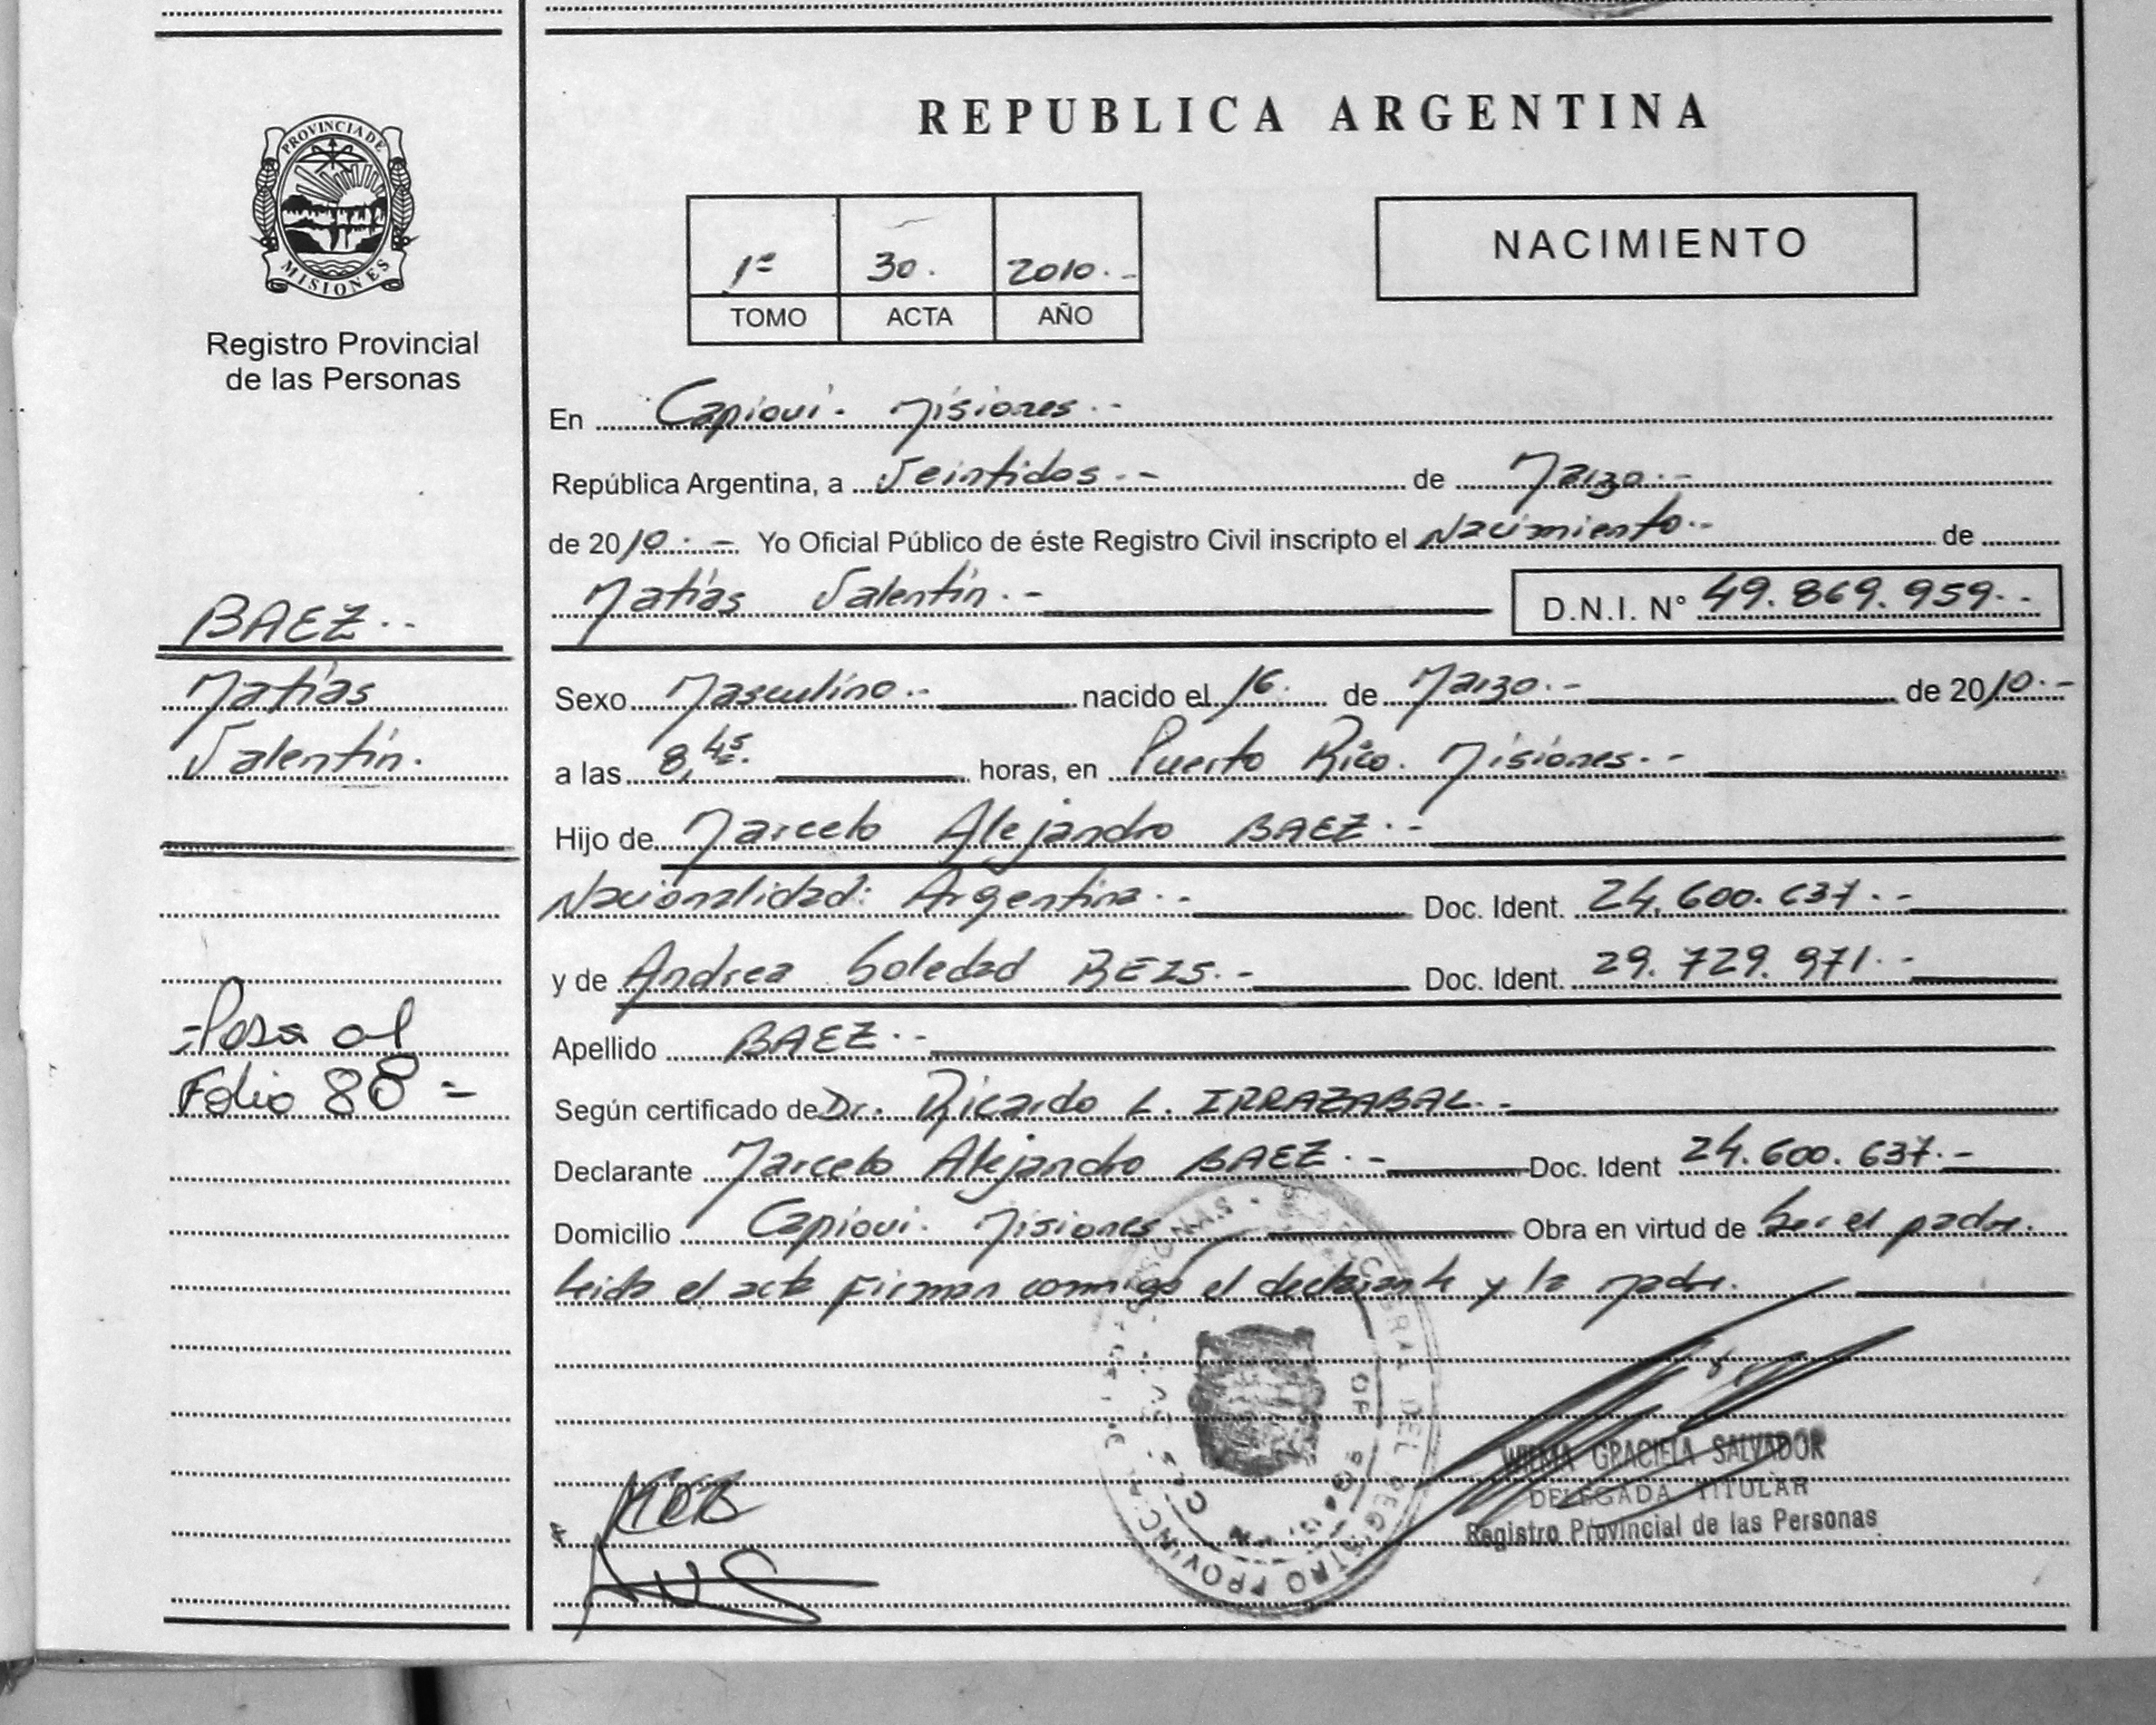 PROVINCIA DE
MISIONES
Registro Provincial
de las Personas
REPUBLICA ARGENTINA
1ª 30. 2010.-
TOMO ACTA AÑO
NACIMIENTO
En Capiovi. Misiones.-
República Argentina, a Veintidos.- de Marzo.-
de 2010.- Yo Oficial Público de éste Registro Civil inscripto el Nacimiento.- de
Matías Valentín.- D.N.I. N° 49.869.959.-
BAEZ.-
Matías
Valentín.
Sexo Masculino.- nacido el 16. de Marzo.- de 2010.-
a las 8,45. horas, en Puerto Rico. Misiones.-
Hijo de Marcelo Alejandro BAEZ.-
Nacionalidad: Argentina.- Doc. Ident. 24.600.637.-
y de Andrea Soledad REIS.- Doc. Ident. 29.729.971.-
Apellido BAEZ.-
Según certificado de Dr. Ricardo L. IRRAZABAL.-
Declarante Marcelo Alejandro BAEZ.- Doc. Ident 24.600.637.-
Domicilio Capiovi. Misiones Obra en virtud de Ser el padre.
Leida el acta Firman conmigo el declarante y la madre.
-Pasa al
Folio 88=
WILMA GRACIELA SALVADOR
DELEGADA TITULAR
Registro Provincial de las Personas